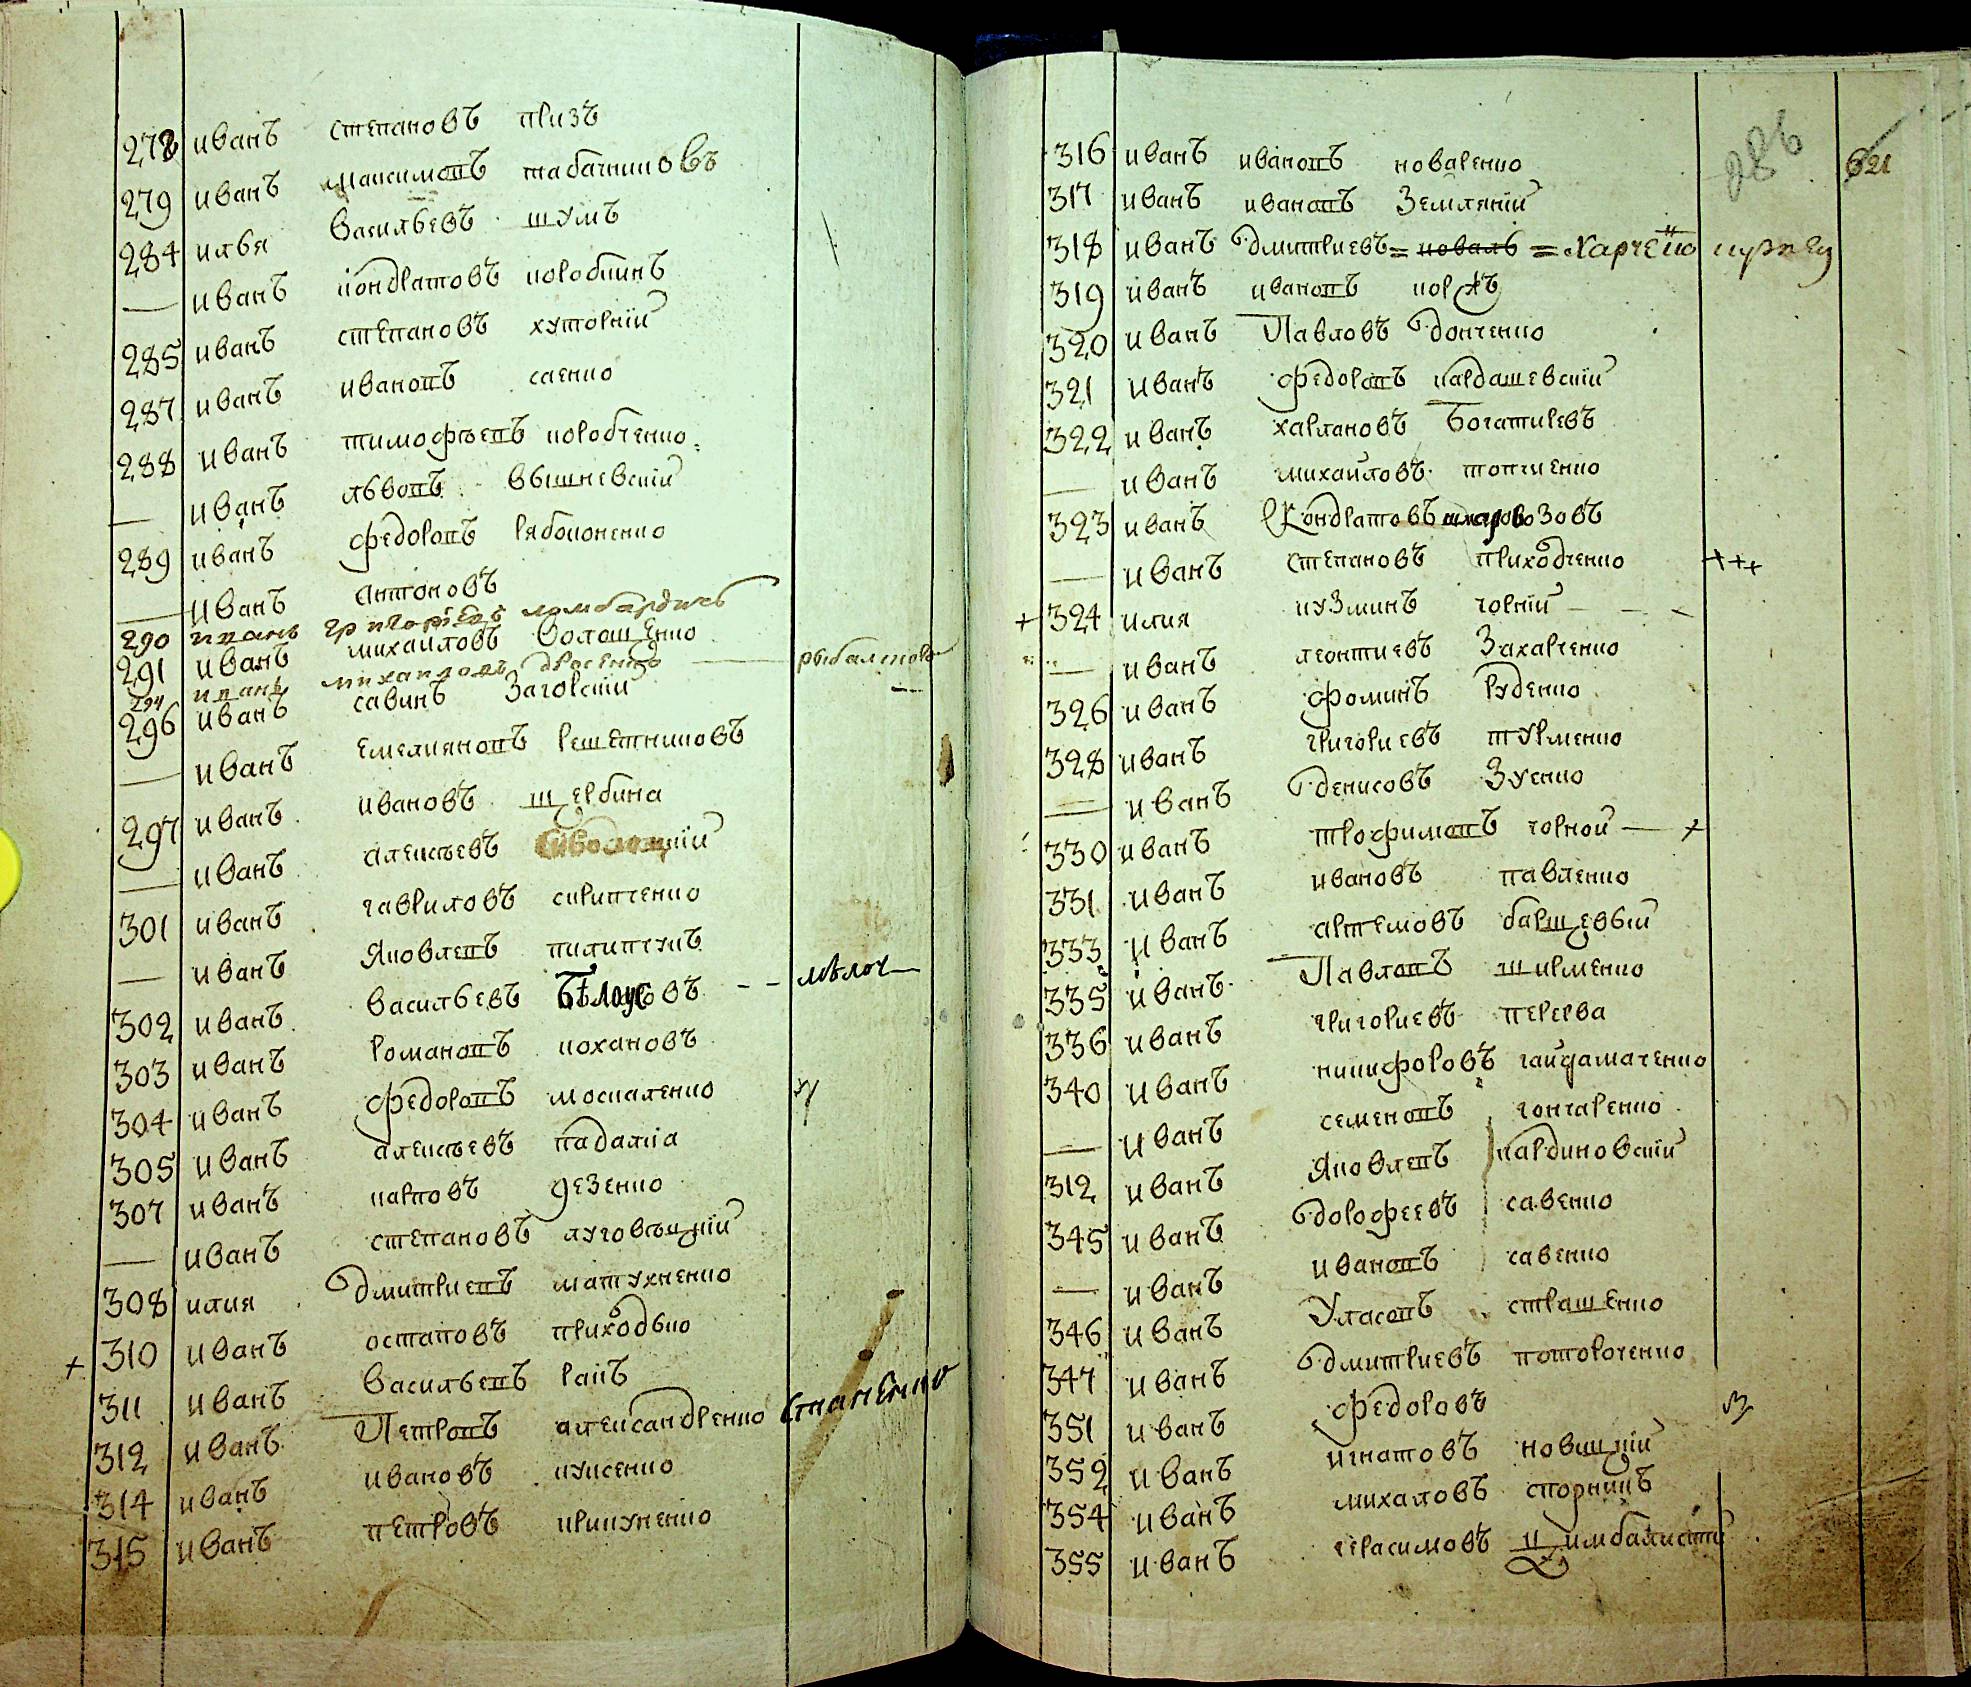 278 иванъ степановъ призъ
279 иванъ максимовъ табачниковъ
284 илья васильевъ шумъ
— иванъ кондратовъ коробкинъ
285 иванъ степановъ хуторнiй
287 иванъ ивановъ саенко
288 иванъ тимофѣевъ коробченко
— иванъ львовъ вышневскiй
289 иванъ федоровъ рябоконенко
— иванъ антоновъ
290 иванъ григорiевъ ломбардичь
291 иванъ михаиловъ волошенко
294 иванъ михаиловъ
рыбалтово
296 иванъ савинъ загорскiй
— иванъ емелияновъ решетниковъ
297 иванъ ивановъ щербина
— иванъ алексѣевъ
301 иванъ гавриловъ скрипченко
— иванъ яковлевъ пилипчукъ
302 иванъ васильевъ Бѣлоусовъ -- мѣлоч
303 иванъ романовъ кохановъ
304 иванъ федоровъ москаленко
305 иванъ алексѣевъ падалка
307 иванъ карповъ дезенко
— иванъ степановъ луговѣцкiй
308 илия дмитриевъ матухненко
+ 310 иванъ остаповъ приходько
311 иванъ васильевъ ракъ
312 иванъ Петровъ александренко
314 иванъ ивановъ куксенко
315 иванъ петровъ крикуненко
316 иванъ ивановъ коваренко 286 621
317 иванъ ивановъ Землянiй
318 иванъ дмитриевъ = коваль = харченко
319 иванъ ивановъ коржъ
320 иванъ Павловъ донченко
321 иванъ федоровъ кардашевскiй
322 иванъ харлановъ Богатиревъ
— иванъ михайловъ топчиенко
323 иванъ Кондратовъ
— иванъ степановъ приходченко +++
+ 324 илия кузминъ чорнiй
— иванъ леонтиевъ Захарченко
326 иванъ фоминъ Руденко
328 иванъ григориевъ турменко
— иванъ денисовъ Зуенко
330 иванъ трофимовъ чорной — +
331 иванъ ивановъ павленко
333 иванъ артемовъ барщевьiй
335 иванъ Павловъ ширменко
336 иванъ григориевъ перерва
340 иванъ никифоровъ гайдамаченко
— иванъ семеновъ гончаренко
312 иванъ яковлевъ кардиновскiй
345 иванъ дорофеевъ савенко
— иванъ ивановъ савенко
346 иванъ Уласовъ страшенко
347 иванъ дмитриевъ потороченко
351 иванъ федоровъ
352 иванъ игнатовъ новицкiй
354 иванъ михаловъ сторчикъ
355 иванъ герасимовъ цимбалистiй